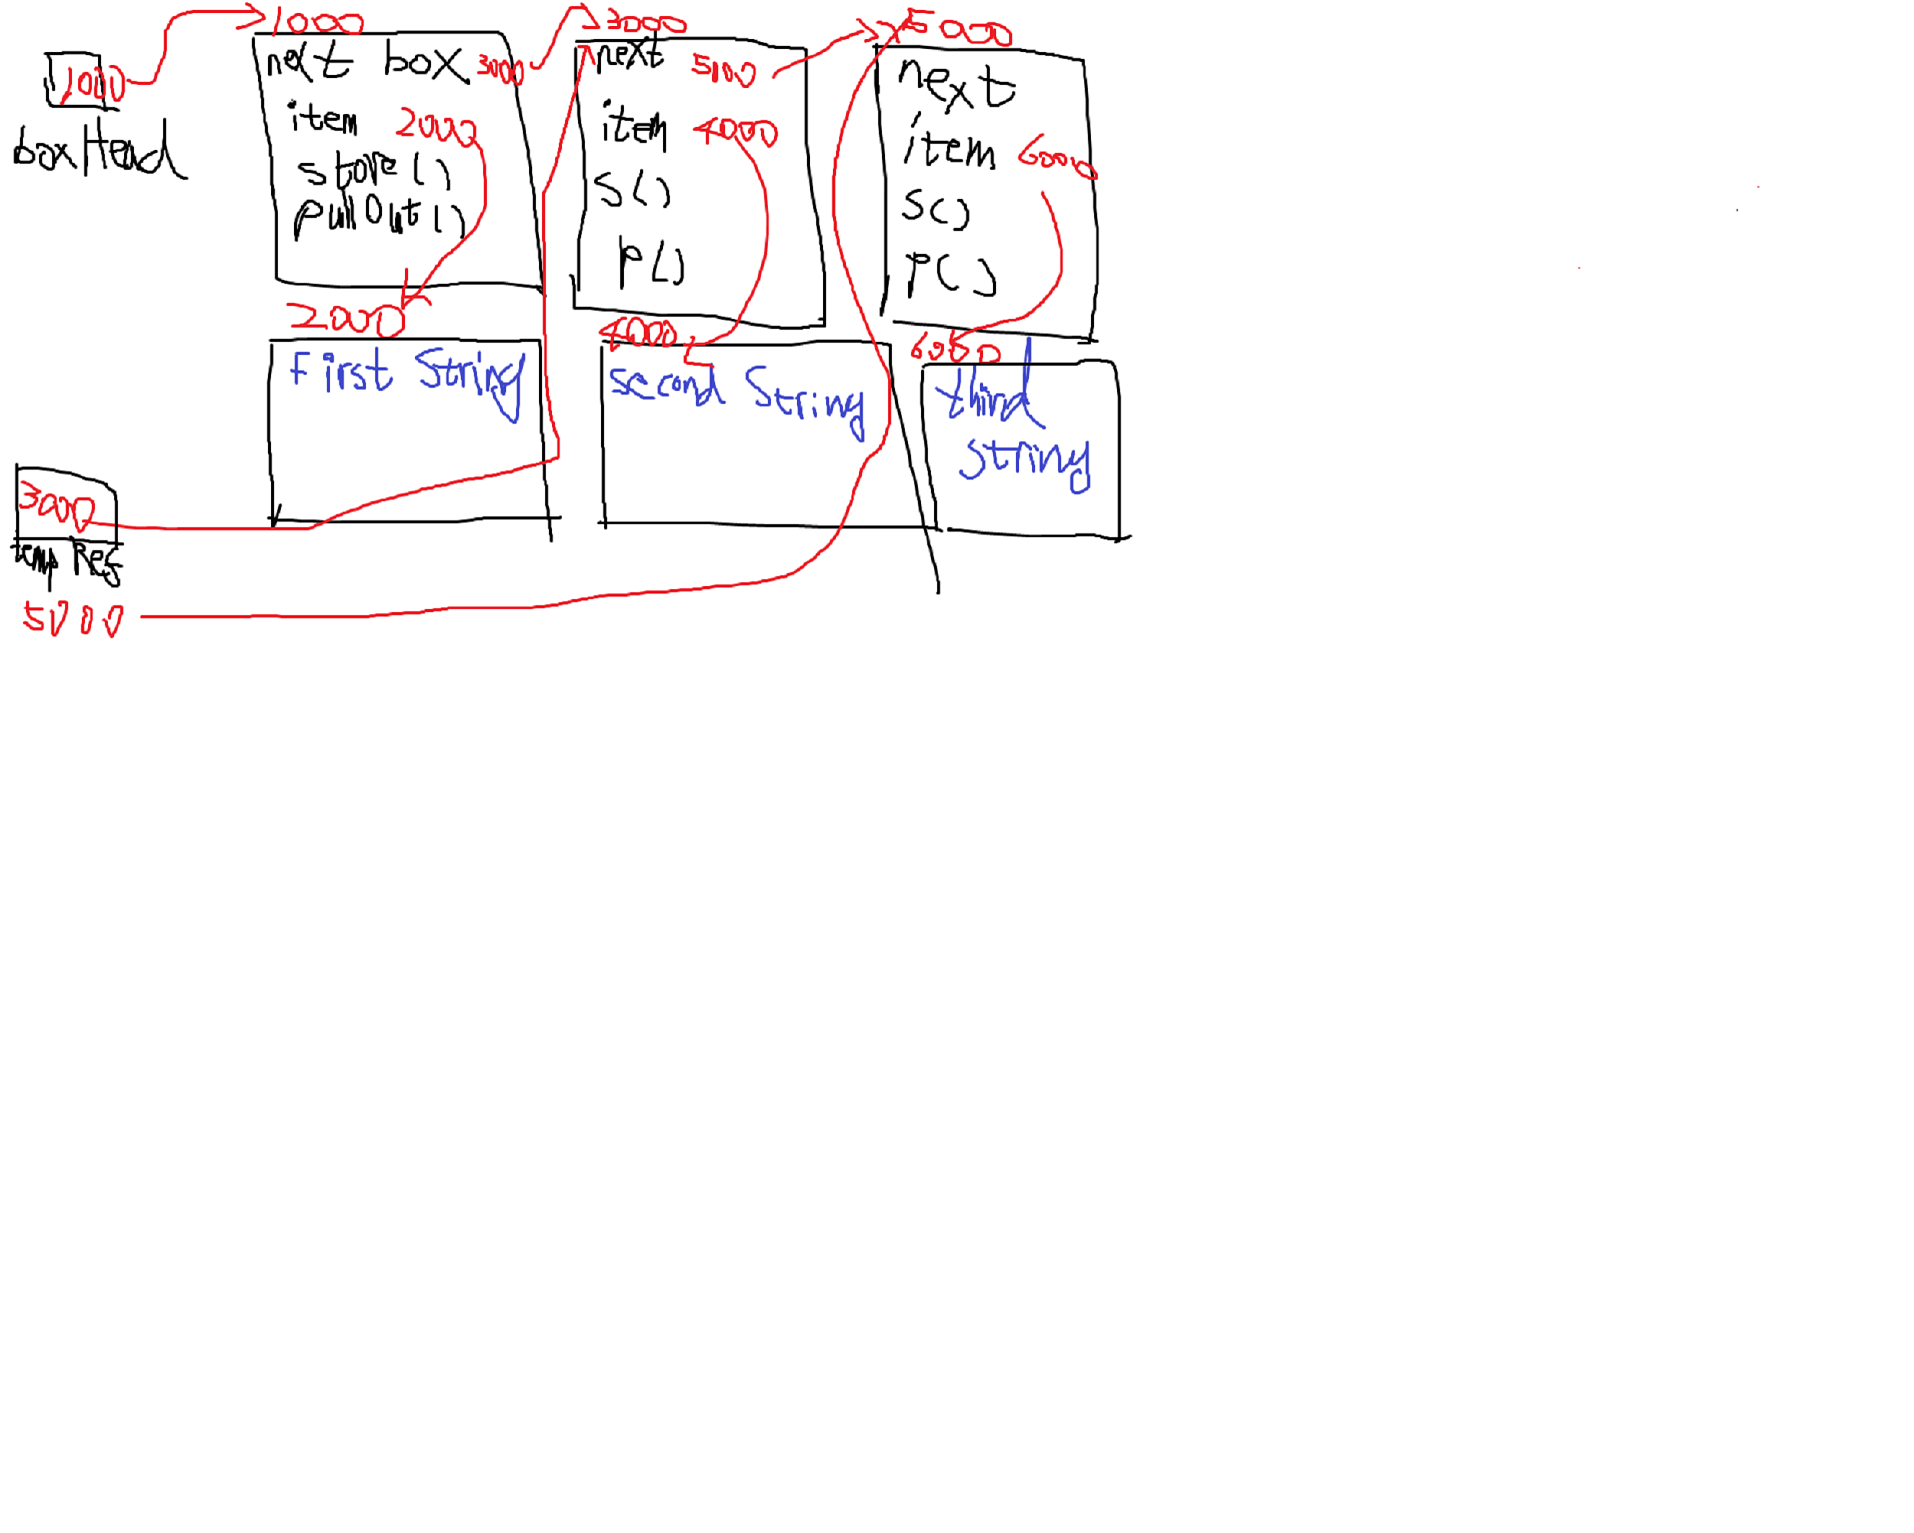 1000
boxHead
1000
next box 3000
item 2000
store()
pullOut()
2000
First String
3000
next 5000
item 4000
s()
p()
4000
second String
5000
next
item 6000
s()
p()
6000
third
string
3000
temp Ref
5000